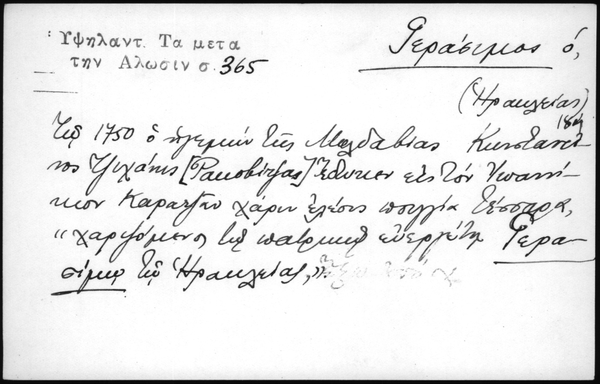 Υψηλαντ. Τα μετα
την Αλωσιν σ. 365
Γεράσιμος ὁ,
(Ἡρακλείας)
18ος
Τῷ 1750 ὁ ἡγεμὼν τῆς Μολδαβίας Κωνσταντῖ
νος Τζιχάνης [Ρακοβίτζας] ἔδωκεν εἰς τὸν Ἰωαννί
κιον Καρατζᾶν χάριν ἐλέους πουγγία τέσσαρα,
"χαριζόμενος τῷ πατρικῷ εὐεργέτῃ Γερα-
σίμῳ τῷ Ἡρακλείας,"